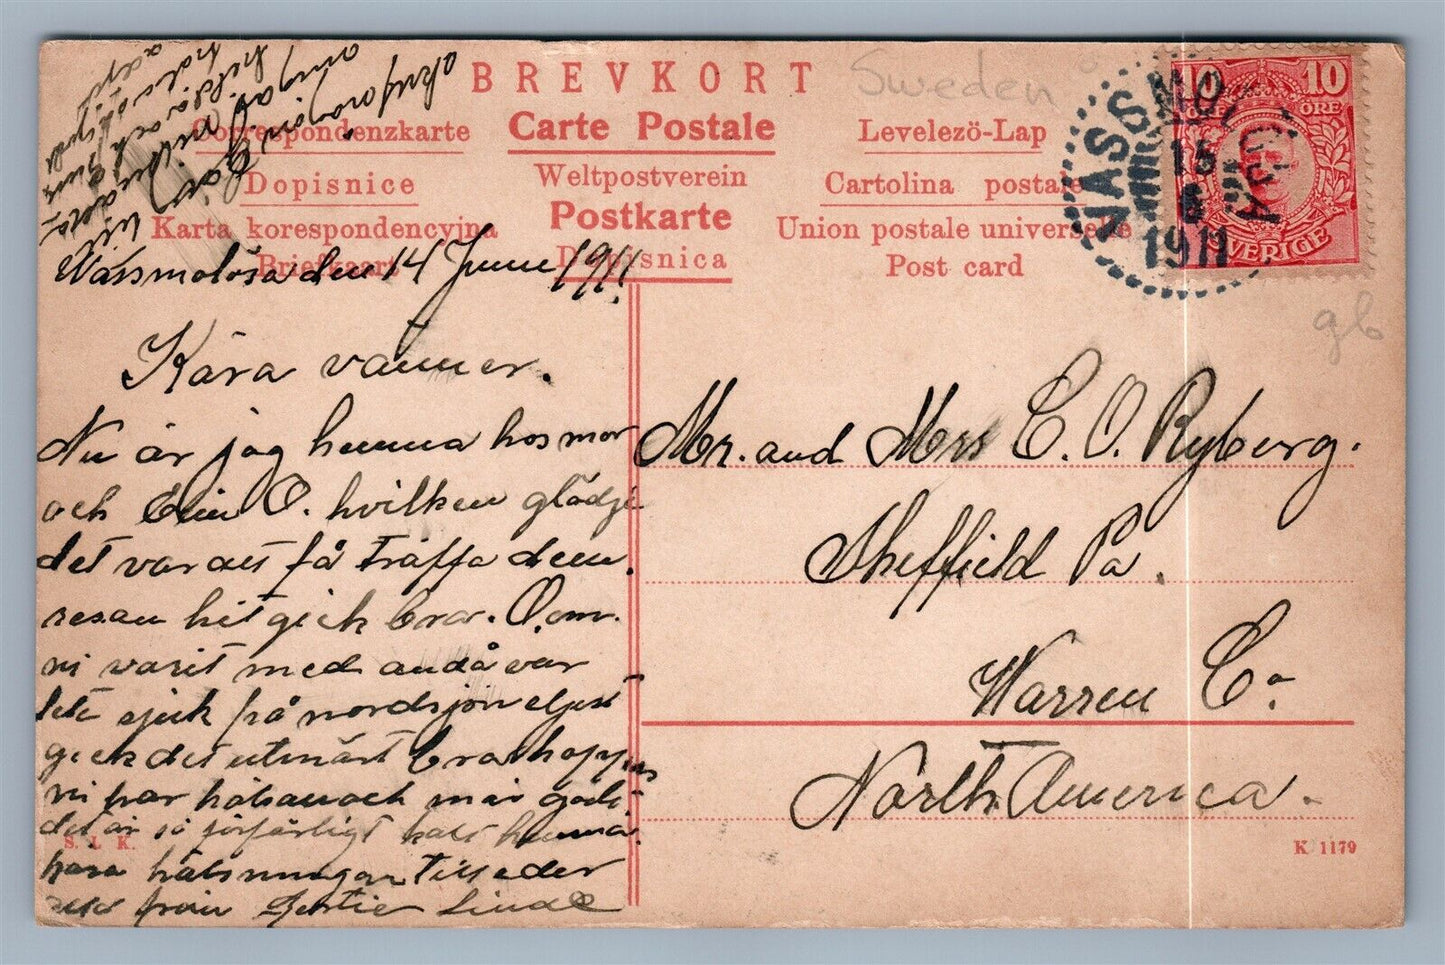 BREVKORT
Sweden
Correspondenzkarte
Carte Postale
Levelezö-Lap
Dopisnice
Weltpostverein
Cartolina postale
Karta korespondencyjna
Postkarte
Union postale universelle
Briefkaart
Dopisnica
Post card
10 10
ÖRE
SVERIGE
VASSMOLÖSA
15
6
1911
gb
Wassmolösa den 14 Juni 1911.
Kära vänner.
Nu är jag hemma hos mor
och O. hvilken glädje
det var att få träffa dem.
resan hit gick bra.
ni varit med ändå var
lite sjuk på nordsjön eljest
gick det utmärkt bra hoppas
ni har hälsan och mår godt
det är så förfärligt kalt hemma
kära hälsningar till eder
från Gertie Linde
Mr. and Mrs C. O. Ryberg.
Sheffield Pa.
Warren Co.
North America.
S. L. K.
K 1179